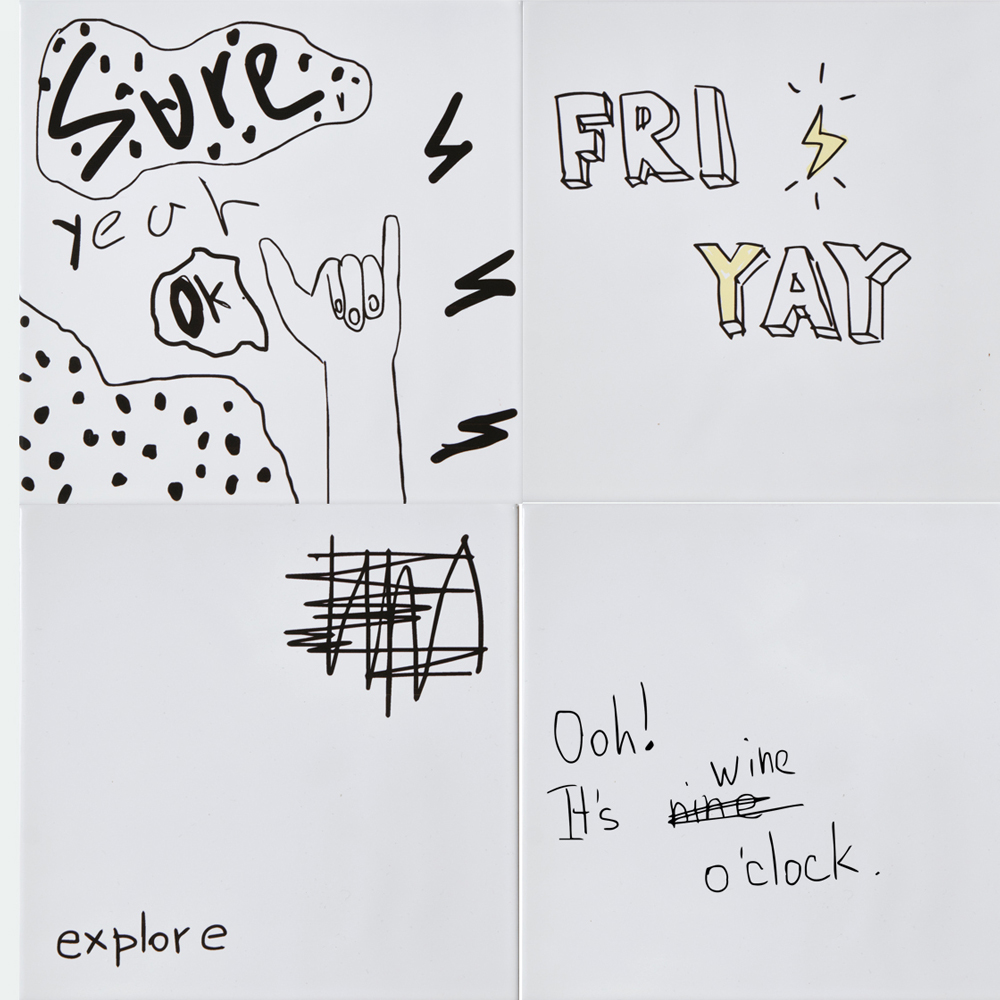 Sure
yeah
OK
FRI
YAY
explore
Ooh!
wine
It's nine
o'clock.